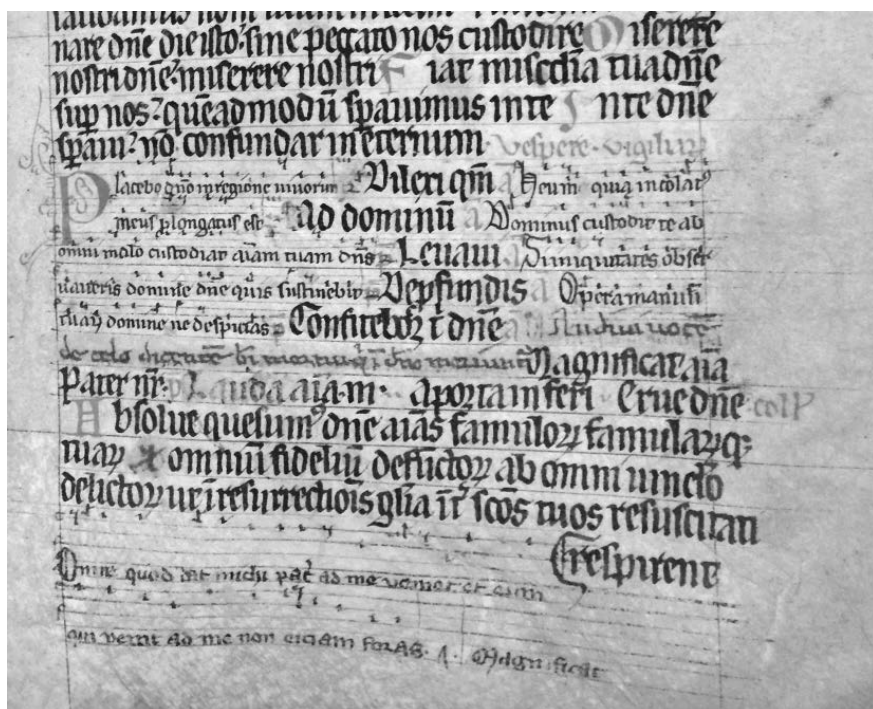 nare dne die isto sine peccato nos custodire Miserere
nostri dne miserere nostri Fiat miscdia tua dne
sup nos quēadmodū spauimus in te In te dne
spaui nō confundar in eternum Vespere vigiliȝ
Placebo dno in regione uiuorum Dilexi qm Heu m quia incolatꝰ
meus plongatus est Ad dominū Dominus custodit te ab
omni malo custodiat aīam tuam dns Leuaui Si iniquitates obser
uaueris domine dne quis sustinebit Depfundis Opera manuū
tuaꝝ domine ne despicias Confiteboꝛ t dne Audiui uocē
de celo dicentē bti mortui qi i dno moriunt Magnificat aīa
Pater nr Lauda aīa m A porta inferi Erue dne coll
Absolue quesumꝰ dne aīas famuloꝝ famulaꝝq
tuaꝝ omniū fideliū defūctoꝝ ab omni uinclo
delictoꝝ ut ī resurrectiois glia īt scōs tuos resuscitati
respirent
Omne quod dat michi pat ad me veniet et eum
qui venit ad me non eiciam foras. A. Magnificat